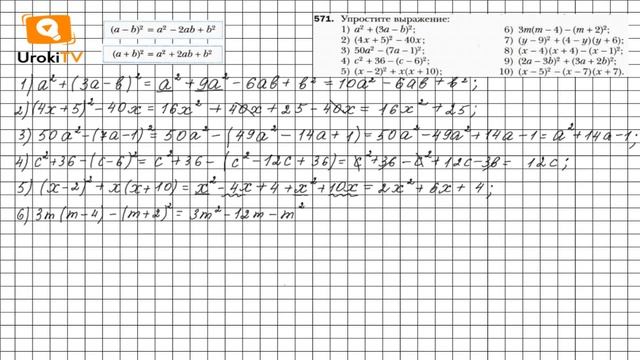 UrokiTV
(a − b)² = a² − 2ab + b²
(a + b)² = a² + 2ab + b²
571. Упростите выражение:
1) a² + (3a − b)²;
2) (4x + 5)² − 40x;
3) 50a² − (7a − 1)²;
4) c² + 36 − (c − 6)²;
5) (x − 2)² + x(x + 10);
6) 3m(m − 4) − (m + 2)²;
7) (y − 9)² + (4 − y)(y + 6);
8) (x − 4)(x + 4) − (x − 1)²;
9) (2a − 3b)² + (3a + 2b)²;
10) (x − 5)² − (x − 7)(x + 7).
1) a² + (3a − b)² = a² + 9a² − 6ab + b² = 10a² − 6ab + b²;
2) (4x + 5)² − 40x = 16x² + 40x + 25 − 40x = 16x² + 25;
3) 50a² − (7a − 1)² = 50a² − (49a² − 14a + 1) = 50a² − 49a² + 14a − 1 = a² + 14a − 1;
4) c² + 36 − (c − 6)² = c² + 36 − (c² − 12c + 36) = c² + 36 − c² + 12c − 36 = 12c;
5) (x − 2)² + x(x + 10) = x² − 4x + 4 + x² + 10x = 2x² + 6x + 4;
6) 3m(m − 4) − (m + 2)² = 3m² − 12m − m²